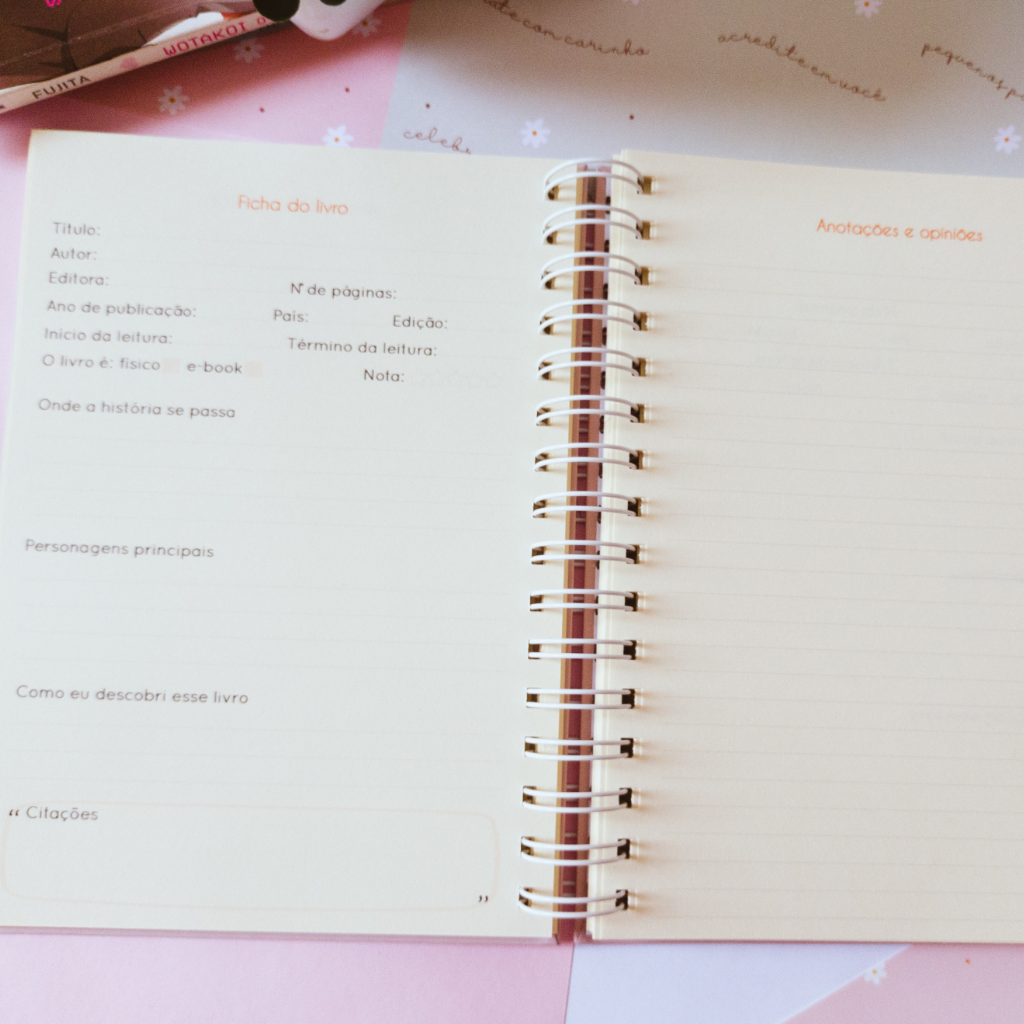 WOTAKOI O
FUJITA
com carinho
acredite em você
pequenos
celebr
Ficha do livro
Título:
Autor:
Editora:
Nº de páginas:
Ano de publicação: País: Edição:
Início da leitura: Término da leitura:
O livro é: físico e-book
Nota:
Onde a história se passa
Personagens principais
Como eu descobri esse livro
“ Citações
”
Anotações e opiniões